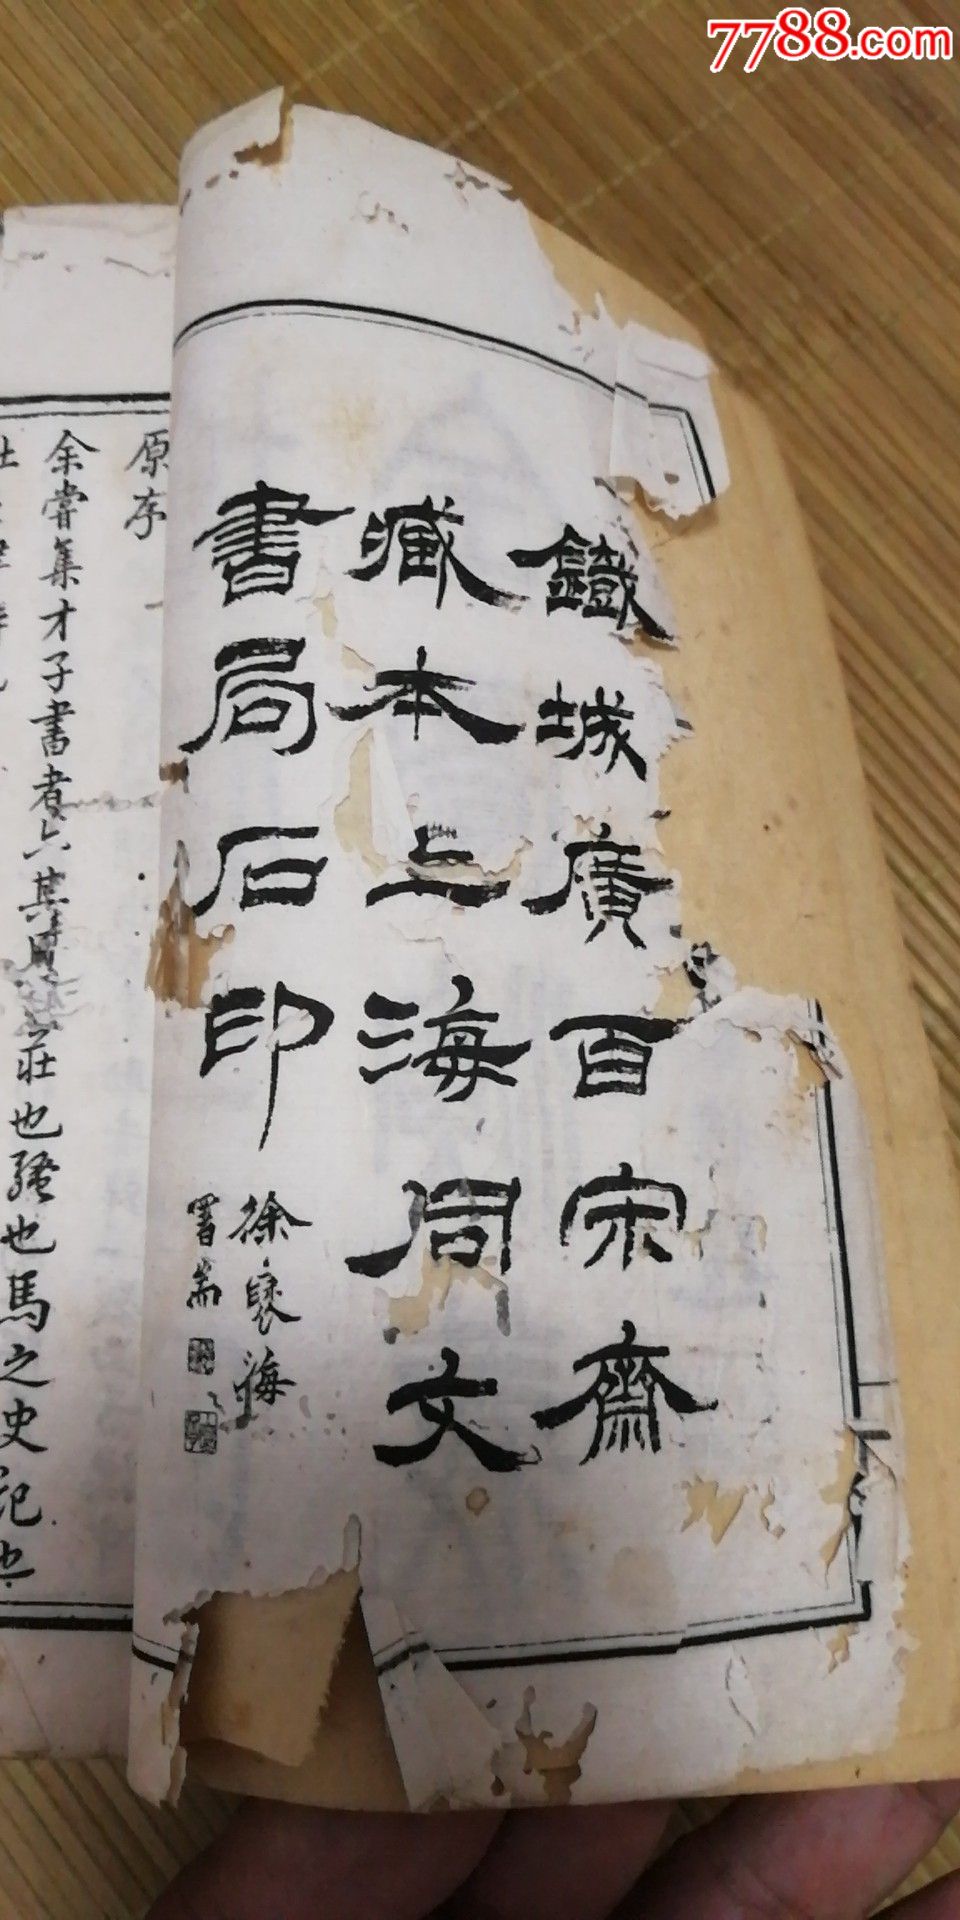 7788.com
鐵城廣百宋齋
藏本上海同文
書局石印
徐襃海
書耑
原序
余嘗集才子書者六其
莊也騷也馬之史記也